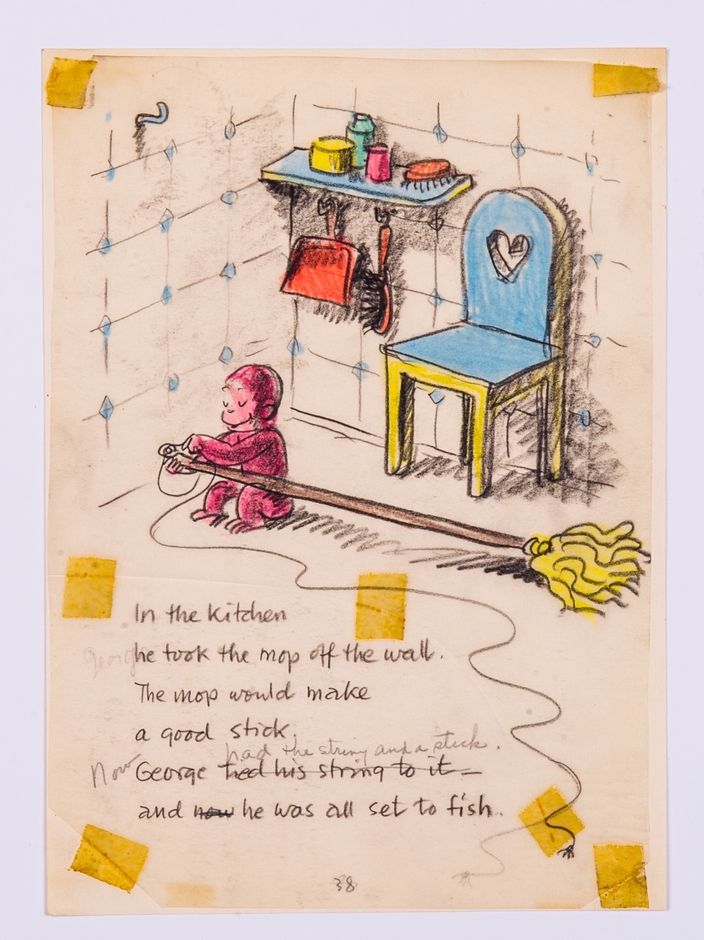 In the kitchen
George he took the mop off the wall.
The mop would make
a good stick
had the string and a stick.
Now George tied his string to it
and now he was all set to fish.
38